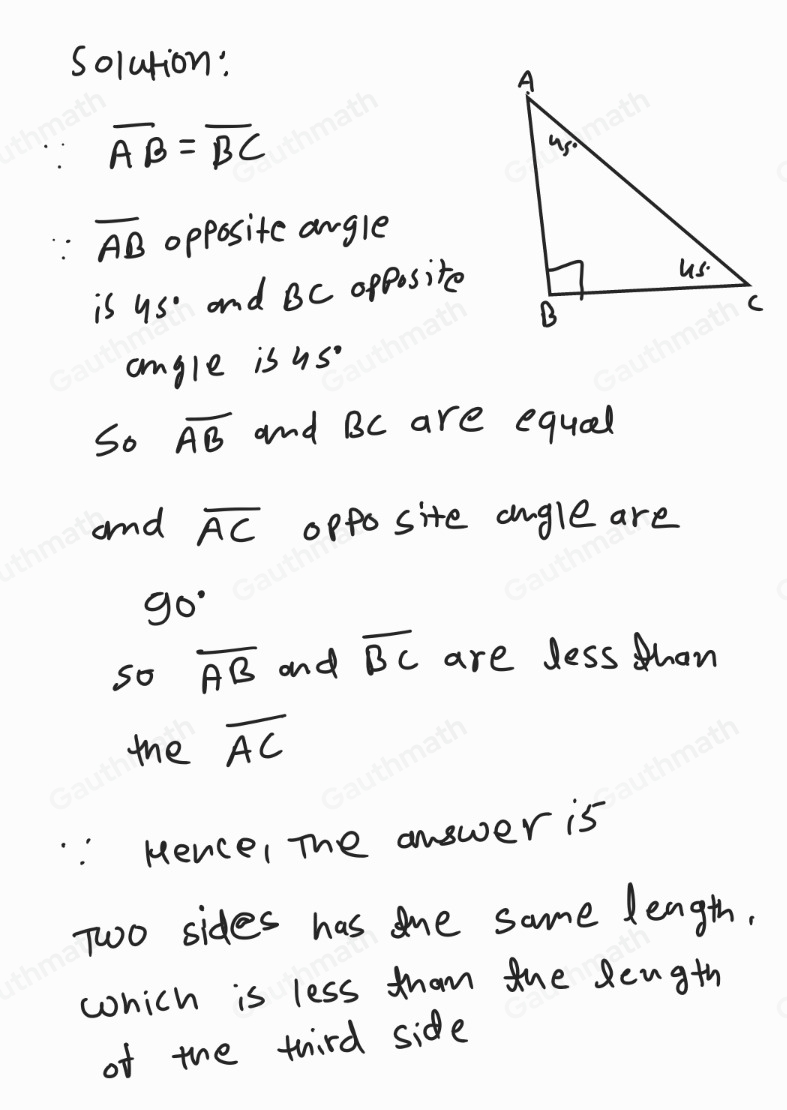 Solution:
∵ AB = BC
∵ AB opposite angle
is 45° and BC opposite
angle is 45°
So AB and BC are equal
and AC opposite angle are
90°
so AB and BC are less than
the AC
∵ Hence, The answer is
Two sides has the same length.
which is less than the length
of the third side
A
45°
45°
B
C
Gauthmath